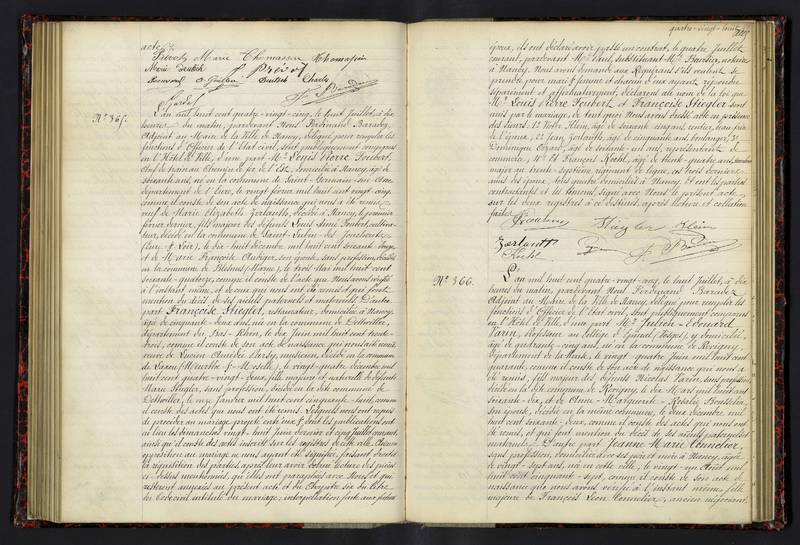 acte
Prévot Marie Thomassin Thomassin
Marie Deutsch Prévot
Deutsch Charles
N° 365.
L'an mil huit cent quatre-vingt-cinq, le huit Juillet, à dix
heures du matin, pardevant Nous Ferdinand Barabez
Adjoint au Maire de la Ville de Nancy, délégué pour remplir les
fonctions d'Officier de l'Etat civil, sont publiquement comparus
en l'Hôtel de Ville, d'une part Mr Louis Pierre Foubert,
Chef de train au Chemin de fer de l'Est, domicilié à Nancy, âgé de
soixante ans, né en la commune de Saint-Germain-sur-Avre
département de l'Eure, le vingt février mil huit cent vingt-cinq,
comme il conste de son acte de naissance qui nous a été remis,
veuf de Marie Elizabeth Zerlauth, décédée à Nancy, le premier
février dernier, fils majeur des défunts Louis Aimé Foubert, cultiva-
teur, décédé en la commune de Saint-Lubin-des-Joncherets
(Eure-&-Loir), le dix-huit décembre mil huit cent soixante-
et de Marie Françoise son épouse, sans profession, décédée
en la commune de Blesmes (Marne), le trois Mai mil huit cent
soixante-quatorze, comme il conste de l'acte que Nous avons vérifié
à l'instant même, et de ceux qui nous ont été remis et qui font
mention du décès de ses aïeuls paternels et maternels. D'autre
part Françoise Stiegler, restaurateur, domiciliée à Nancy,
âgée de cinquante-deux ans, née en la commune de Dettwiller,
département du Bas-Rhin, le dix Juin mil huit cent trente-
trois, comme il conste de son acte de naissance qui nous a été remis,
veuve de Lucien Amédée Darsy, musicien, décédé en la commune
de Laxou (Meurthe-&-Moselle), le vingt-quatre décembre mil
huit cent quatre-vingt-deux, fille majeure et naturelle de défunte
Marie Stiegler, sans profession, décédée en la dite commune de
Dettwiller, le onze Janvier mil huit cent cinquante-huit, comme
il conste des actes qui nous ont été remis. Lesquels nous ont requis
de procéder au mariage projeté entr'eux & dont les publications ont
eu lieu les dimanches vingt-huit Juin dernier et cinq Juillet courant,
ainsi qu'il conste des actes inscrits sur les registres de cette ville. Aucune
opposition au mariage ne nous ayant été signifiée, faisant droit à
la réquisition des parties, après leur avoir donné lecture des pièces
ci-dessus mentionnées, qu'elles ont paraphées avec Nous et qui
resteront annexées au présent acte et du Chapitre six du titre
du Code civil intitulé du mariage, interpellation faite aux futurs
quatre-vingt-huit
époux, ils ont déclaré avoir passé un contrat, le quatre Juillet
courant, pardevant Me Paul, substituant Me notaire
à Nancy. Nous avons demandé aux Requérans s'ils veulent se
prendre pour mari & femme et chacun d'eux ayant répondu
séparément et affirmativement, déclarons au nom de la loi que
Mr Louis Pierre Foubert et Françoise Stiegler sont
unis par le mariage, de tout quoi Nous avons dressé acte en présence
des Sieurs: 1° Klein, âgé de soixante-cinq ans, rentier, beau-
de l'épouse, 2° Jean Zerlauth, âgé de cinquante ans, boulanger, 3°
Dominique âgé de soixante-un ans, représentant de
commerce, 4° Et François Kechl, âgé de trente-quatre ans, tambour
major au trente-septième régiment de ligne, ces trois derniers
amis des époux, tous quatre domiciliés à Nancy. Et ont les parties
contractantes et les témoins, signé avec Nous le présent acte
sur les deux registres à ce destinés, après lecture et collation
faites.
Stiegler Klein
Zerlauth
Kechl
N° 366.
L'an mil huit cent quatre-vingt-cinq, le huit Juillet, à dix
heures du matin, pardevant Nous Ferdinand Barabez
Adjoint au Maire de la Ville de Nancy, délégué pour remplir les
fonctions d'Officier de l'Etat civil, sont publiquement comparus
en l'Hôtel de Ville, d'une part Mr Julien-Edouard
Parin, Professeur au Collège d'Epinal (Vosges), y domicilié,
âgé de quarante-cinq ans, né en la commune de Revigny,
Département de la Meuse, le vingt-quatre Juin mil huit cent
quarante, comme il conste de son acte de naissance qui nous a
été remis, fils majeur des défunts Nicolas Parin, sans profession,
décédé en la dite commune de Revigny, le dix Mars mil huit cent
soixante-dix, et de Anne-Marguerite-Rosalie
son épouse, décédée en la même commune, le deux décembre mil
huit cent soixante-deux, comme il conste des actes qui nous ont
été remis, et qui font mention du décès de ses aïeuls paternels et
maternels. D'autre part Jeanne Marie Connelier,
sans profession, domiciliée avec ses père et mère à Nancy, âgée
de vingt-sept ans, née en cette ville, le vingt-un Août mil
huit cent cinquante-sept, comme il conste de son acte de
naissance que nous avons vérifié à l'instant même, fille
majeure de François Léon Connelier, ancien négociant,